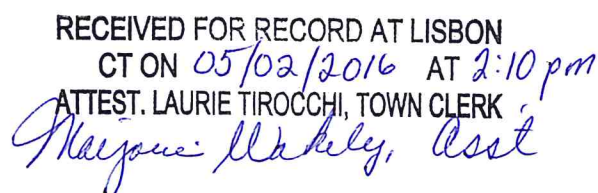 RECEIVED FOR RECORD AT LISBON
CT ON 05/02/2016 AT 2:10 pm
ATTEST. LAURIE TIROCCHI, TOWN CLERK
Marjorie Wakely, Asst